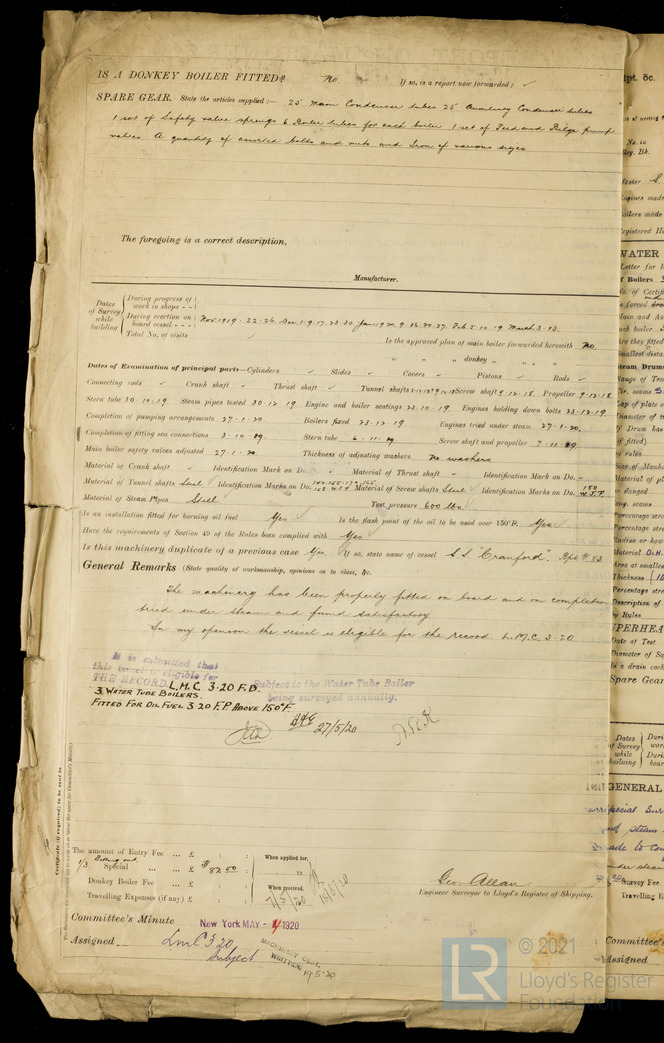 IS A DONKEY BOILER FITTED? No If so, is a report now forwarded? ✓
SPARE GEAR. State the articles supplied:— 25 Main Condenser tubes 25 Auxiliary Condenser tubes
1 set of Safety valve springs 6 Boiler tubes for each boiler 1 set of Feed and Bilge pump
valves A quantity of assorted bolts and nuts and Iron of various sizes
The foregoing is a correct description,
Manufacturer.
Dates of Survey while building
During progress of work in shops - -
During erection on board vessel - - - Nov. 1919 - 22-26. Dec. 1-9-17-23-30 Jan 1920 9-16-20-27 Feb 5-10-19 March 3-13.
Total No. of visits
Is the approved plan of main boiler forwarded herewith No.
" " " donkey " " "
Dates of Examination of principal parts—Cylinders ✓ Slides ✓ Covers ✓ Pistons ✓ Rods ✓
Connecting rods ✓ Crank shaft ✓ Thrust shaft ✓ Tunnel shafts Screw shaft 9-12-18. Propeller 9-12-18
Stern tube 30-10-19 Steam pipes tested 30-12-19 Engine and boiler seatings 23-10-19 Engines holding down bolts 23-12-19
Completion of pumping arrangements 27-1-20 Boilers fixed 23-12-19 Engines tried under steam 27-1-20.
Completion of fitting sea connections 3-10-19 Stern tube 6-11-19 Screw shaft and propeller 7-11-19
Main boiler safety valves adjusted 27-1-20 Thickness of adjusting washers No washers
Material of Crank shaft ✓ Identification Mark on Do. ✓ Material of Thrust shaft ✓ Identification Mark on Do. -
Material of Tunnel shafts Steel ✓ Identification Marks on Do. Material of Screw shafts Steel ✓ Identification Marks on Do. 150 W.J.T.
Material of Steam Pipes Steel ✓ Test pressure 600 lbs
Is an installation fitted for burning oil fuel Yes ✓ Is the flash point of the oil to be used over 150°F. Yes
Have the requirements of Section 49 of the Rules been complied with Yes
Is this machinery duplicate of a previous case Yes If so, state name of vessel S.S. "Cranford". Rpt # 53
General Remarks (State quality of workmanship, opinions as to class, &c.
The machinery has been properly fitted on board and on completion
tried under steam and found satisfactory
In my opinion the vessel is eligible for the record L.M.C. 3-20
It is submitted that
this vessel is eligible for
THE RECORD. L.M.C. 3.20 F.D. Subject to the Water Tube Boiler
3 WATER TUBE BOILERS. being surveyed annually.
FITTED FOR OIL FUEL 3.20 F.P. ABOVE 150°F.
27/5/20
A.R.K
Certificate (if required) to be sent to
The amount of Entry Fee ... £ : :
1/3 Special ... £ $ 82.50 :
Donkey Boiler Fee ... £ : :
Travelling Expenses (if any) £ : :
When applied for,
When received,
Geo. Allan
Engineer Surveyor to Lloyd's Register of Shipping.
Committee's Minute New York MAY - 1920
Assigned LMC 3.20
Subject
MACHINERY CERT. WRITTEN. 19-5-20
WATER
GENERAL
Survey Fee
Committee's
Assigned
LR
© 2021
Lloyd's Register
Foundation